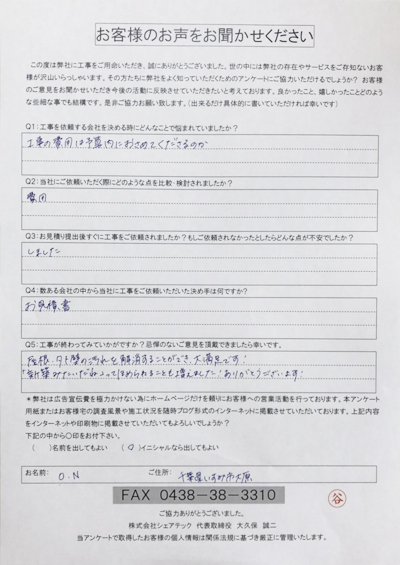 お客様のお声をお聞かせください
この度は弊社に工事をご用命いただき、誠にありがとうございました。世の中には弊社の存在やサービスをご存知ないお客
様が沢山いらっしゃいます。その方たちに弊社をよく知っていただくためのアンケートにご協力いただけるでしょうか? お客様
のご意見をお聞かせいただき今後の活動に反映させていただきたいと考えております。良かったこと、嬉しかったことどのよう
な些細な事でも結構です。是非ご協力お願い致します。(出来るだけ具体的に書いていただければ幸いです)
Q1:工事を依頼する会社を決める時にどんなことで悩まれていましたか?
工事の費用は予算内におさめてくださるのか
Q2:当社にご依頼いただく際にどのような点を比較・検討されましたか?
費用
Q3:お見積り提出後すぐに工事をご依頼されましたか?もしご依頼されなかったとしたらどんな点が不安でしたか?
しました
Q4:数ある会社の中から当社に工事をご依頼いただいた決め手は何ですか?
お見積書
Q5:工事が終わってみていかがですか?忌憚のないご意見を頂戴できましたら幸いです。
屋根、外壁の汚れを解消することができ、大満足です!
「新築みたいだね」ってほめられることも増えました!ありがとうございます!
*弊社は広告宣伝費を極力かけない為にホームページだけを頼りにお客様への営業活動を行っております。本アンケート
用紙またはお客様宅の調査風景や施工状況を随時ブログ形式のインターネットに掲載させていただいております。上記内容
をインターネットや印刷物に掲載させていただいてもよろしいでしょうか?
下記の中から○印をお付下さい。
( )名前を出してもよい (○)イニシャルなら出してもよい
お名前: O.N ご住所: 千葉県いすみ市大原
FAX 0438-38-3310
谷
ご協力ありがとうございました。
株式会社シェアテック 代表取締役 大久保 誠二
当アンケートで取得したお客様の個人情報は関係法規に基づき厳正に管理いたします。